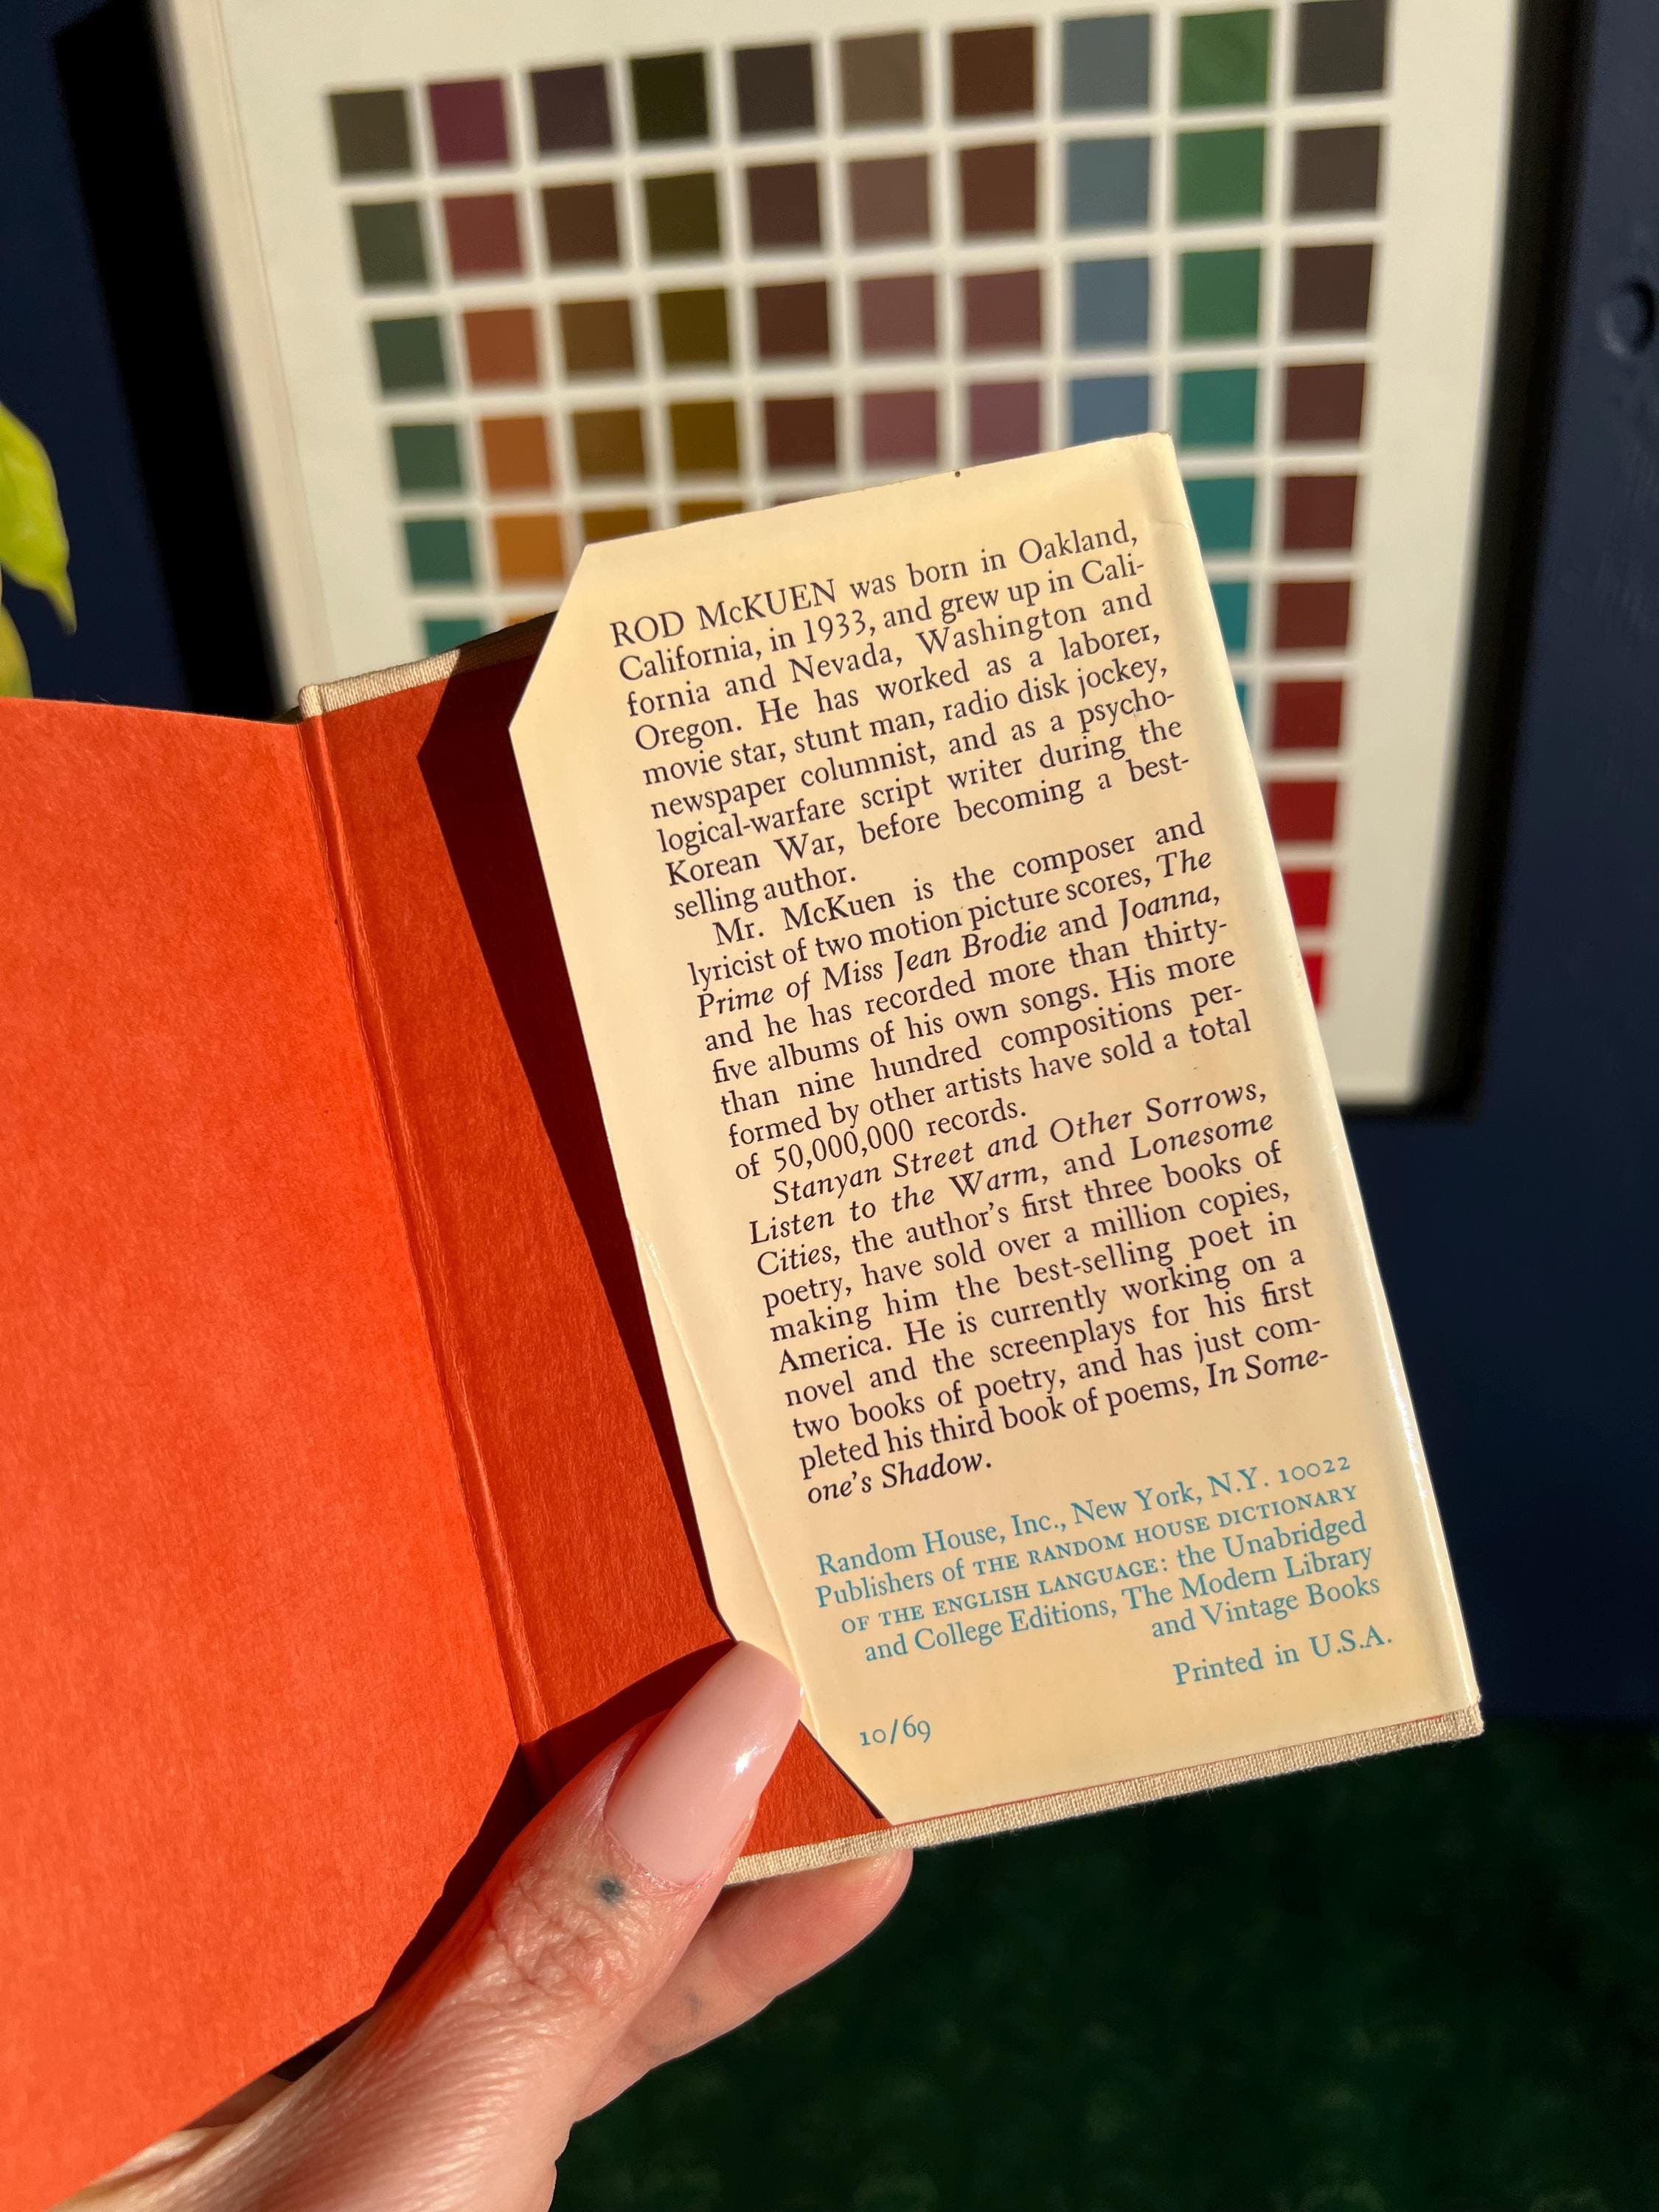 ROD McKUEN was born in Oakland,
California, in 1933, and grew up in Cali-
fornia and Nevada, Washington and
Oregon. He has worked as a laborer,
movie star, stunt man, radio disk jockey,
newspaper columnist, and as a psycho-
logical-warfare script writer during the
Korean War, before becoming a best-
selling author.
Mr. McKuen is the composer and
lyricist of two motion picture scores, The
Prime of Miss Jean Brodie and Joanna,
and he has recorded more than thirty-
five albums of his own songs. His more
than nine hundred compositions per-
formed by other artists have sold a total
of 50,000,000 records.
Stanyan Street and Other Sorrows,
Listen to the Warm, and Lonesome
Cities, the author's first three books of
poetry, have sold over a million copies,
making him the best-selling poet in
America. He is currently working on a
novel and the screenplays for his first
two books of poetry, and has just com-
pleted his third book of poems, In Some-
one's Shadow.
Random House, Inc., New York, N.Y. 10022
Publishers of THE RANDOM HOUSE DICTIONARY
OF THE ENGLISH LANGUAGE: the Unabridged
and College Editions, The Modern Library
and Vintage Books
Printed in U.S.A.
10/69